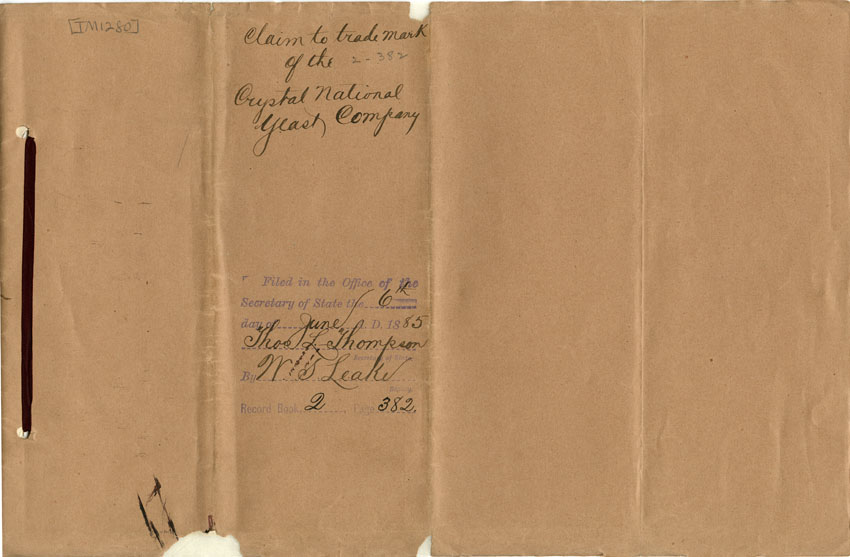 [TM1280]
Claim to trade mark
of the 2-382
Crystal National
Yeast Company
Filed in the Office of the
Secretary of State the 6th
day of June A. D. 1885
Thos L. Thompson
Secretary of State
By W S Leake
Deputy
Record Book 2 Page 382.